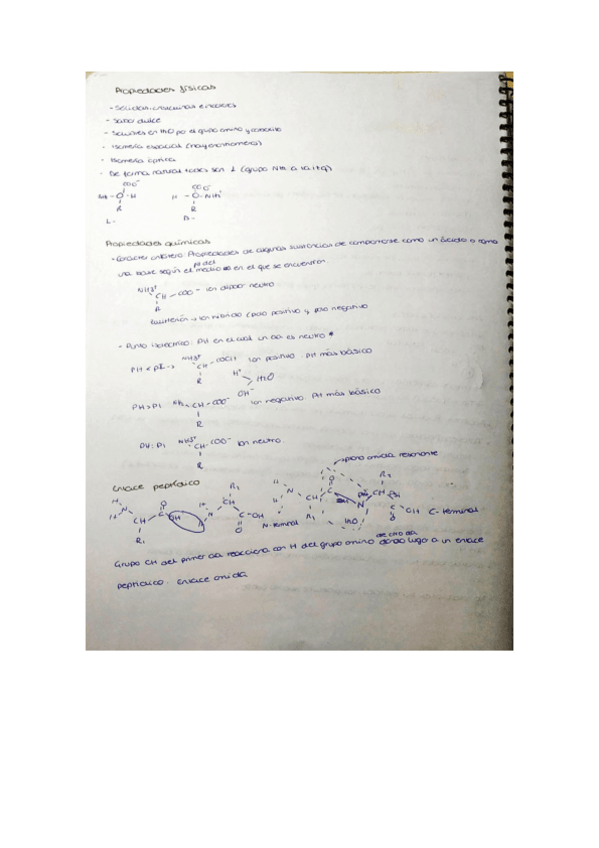 Propiedades físicas
- Sólidas, cristalinas e incoloras
- Sabor dulce
- Solubles en H2O por el grupo amino y carboxilo
- Isomería espacial (hay enantiómeros)
- Isomería óptica
- De forma natural todos son L (grupo NH2 a la izq)
COO⁻ COO⁻
- C - H H - C - NH3⁺
R R
L - D -
Propiedades químicas
- Carácter anfótero: Propiedades de algunas sustancias de comportarse como un ácido o como
una base según el pH del medio en el que se encuentren
NH3⁺ - CH - COO⁻ Ion dipolar neutro
R
→ Ion híbrido (polo positivo y polo negativo
- Punto isoeléctrico: pH en el cual un aa es neutro *
PH < PI → NH3⁺ - CH - COOH Ion positivo. PH más básico
R H⁺
H2O
OH⁻
PH > PI NH2 - CH - COO⁻ Ion negativo. PH más básico
R
PH = PI NH3⁺ - CH - COO⁻ Ion neutro.
R
→ plano amida resonante
Enlace peptídico
H N CH C O OH H N CH R1 C OH O
H R1
N-terminal
H N CH C O N CH R2 C OH O C-terminal
H R1 H2O
Grupo OH del primer aa reacciona con H del grupo amino de otro aa dando lugar a un enlace
peptídico. Enlace amida